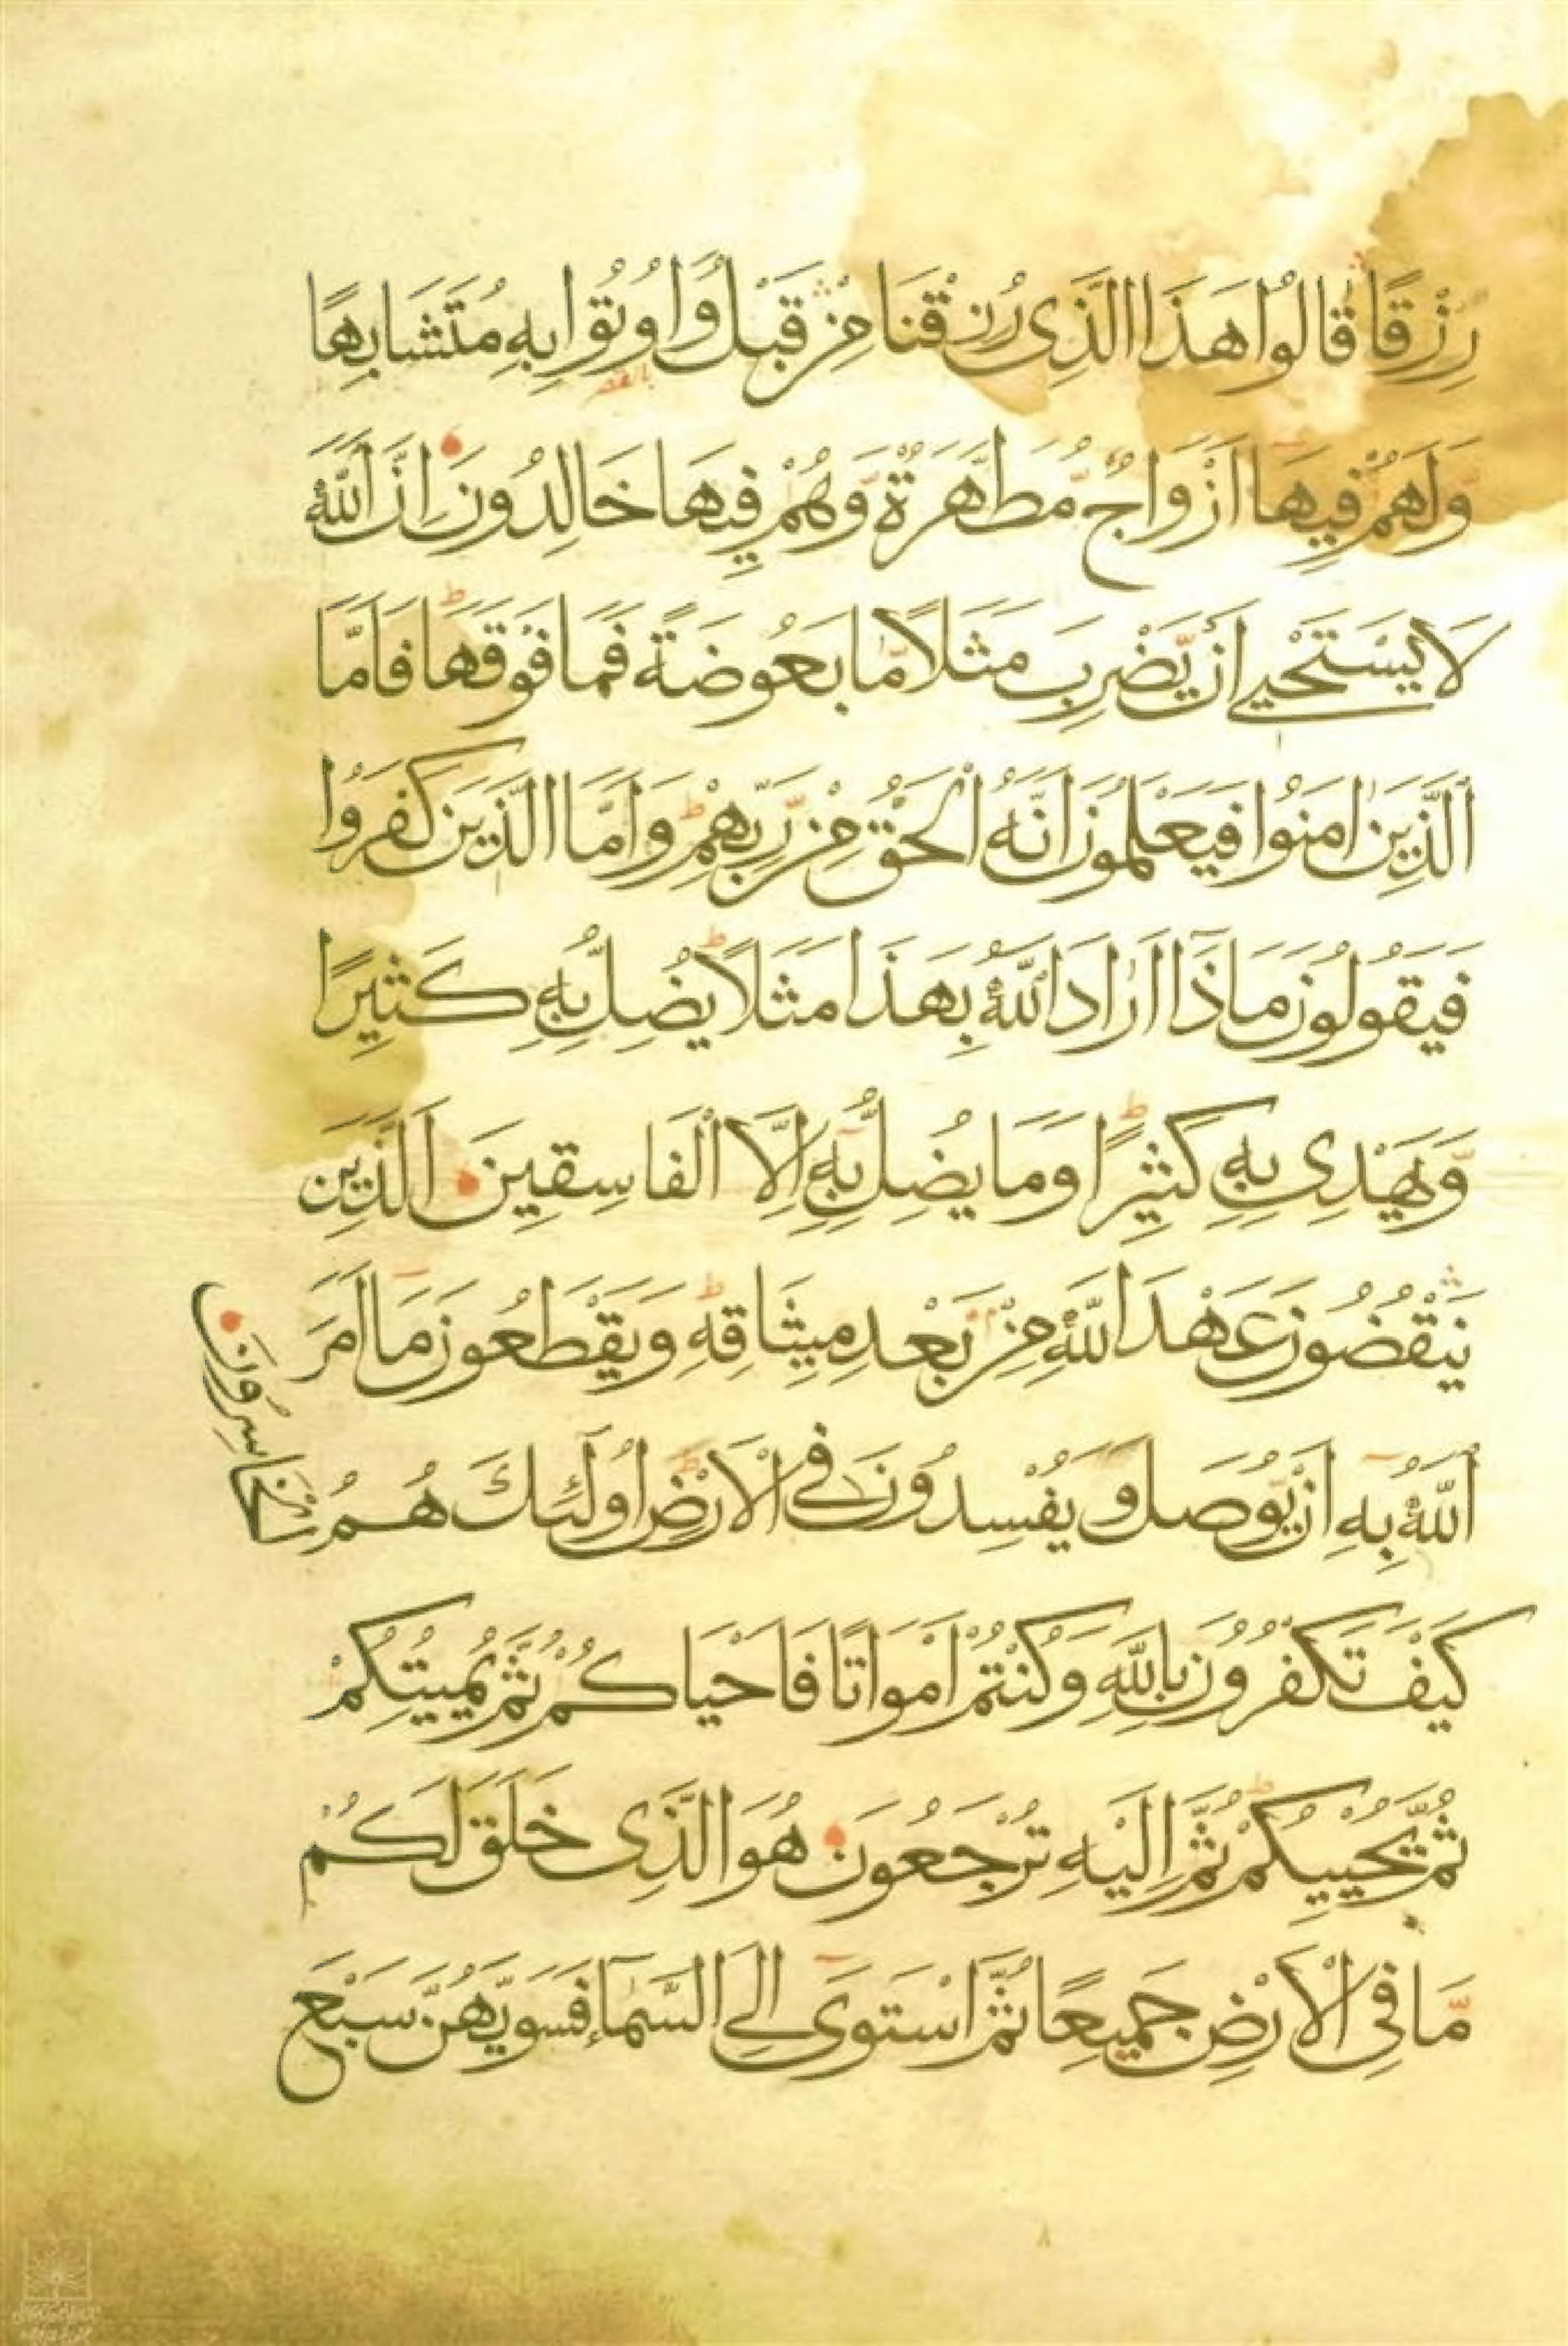 رِزْقًا قَالُوا هَذَا الَّذِى رُزِقْنَا مِنْ قَبْلُ وَاُوتُوا بِهِ مُتَشَابِهًا
وَلَهُمْ فِيهَا اَزْوَاجٌ مُطَهَّرَةٌ وَهُمْ فِيهَا خَالِدُونَ اِنَّ اَللّٰهَ
لَا يَسْتَحْيِى اَنْ يَضْرِبَ مَثَلًا مَّا بَعُوضَةً فَمَا فَوْقَهَا ط فَاَمَّا
اَلَّذِينَ اٰمَنُوا فَيَعْلَمُونَ اَنَّهُ اَلْحَقُّ مِنْ رَبِّهِمْ ط وَاَمَّا الَّذِينَ كَفَرُوا
فَيَقُولُونَ مَاذَا اَرَادَ اَللّٰهُ بِهَذَا مَثَلًا ط يُضِلُّ بِهِ كَثِيرًا
وَّيَهْدِى بِهِ كَثِيرًا ط وَمَا يُضِلُّ بِهِ اِلَّا اَلْفَاسِقِينَ اَلَّذِينَ
يَنْقُضُونَ عَهْدَ اللّٰهِ مِنْ بَعْدِ مِيثَاقِهِ ط وَيَقْطَعُونَ مَا اَمَرَ
اَللّٰهُ بِهِ اَنْ يُّوصَلَ وَيُفْسِدُونَ فِى الْاَرْضِ ط اُولَئِكَ هُمُ الْخَاسِرُونَ
كَيْفَ تَكْفُرُونَ بِاللّٰهِ وَكُنْتُمْ اَمْوَاتًا فَاَحْيَاكُمْ ثُمَّ يُمِيتُكُمْ
ثُمَّ يُحْيِيكُمْ ط ثُمَّ اِلَيْهِ تُرْجَعُونَ هُوَ الَّذِى خَلَقَ لَكُمْ
مَّا فِى الْاَرْضِ جَمِيعًا ثُمَّ اسْتَوَى اِلَى السَّمَآءِ فَسَوّٰيهُنَّ سَبْعَ